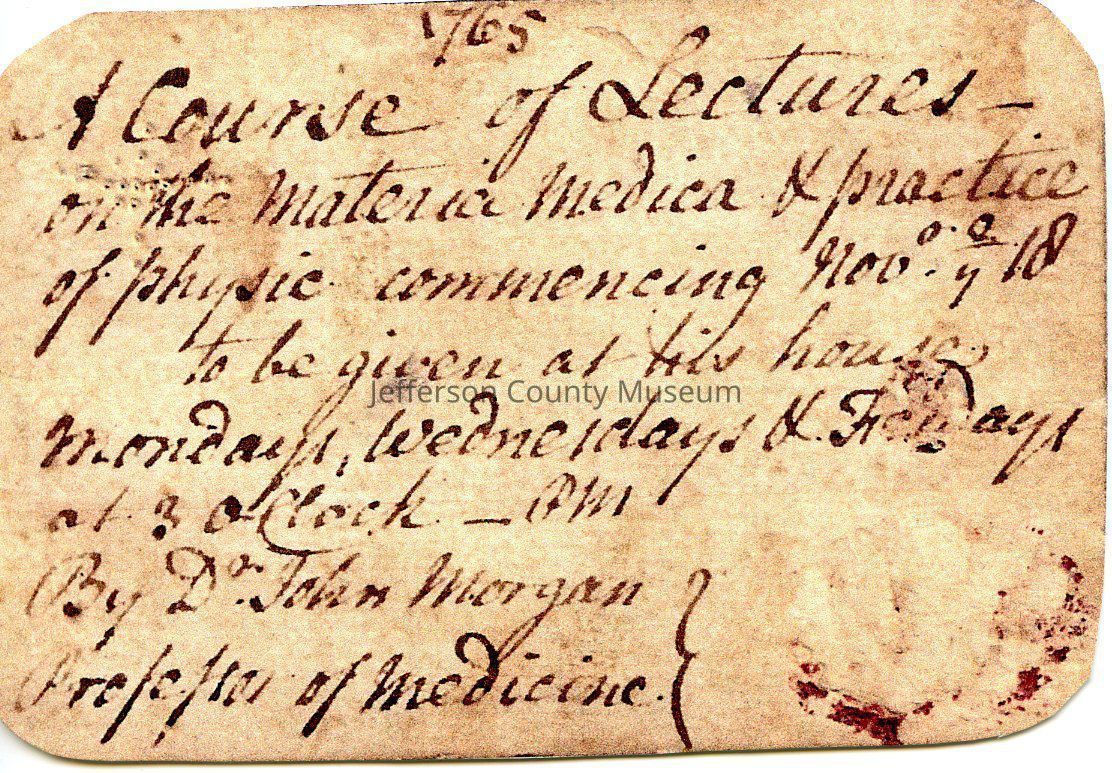 1765
A Course of Lectures -
on the Materia Medica & practice
of physic commencing Nov.º yᵉ 18
to be given at his house,
Mondays, Wednesdays & Fridays
at 3 oClock - PM
By Dr. John Morgan
Professor of Medicine.
Jefferson County Museum